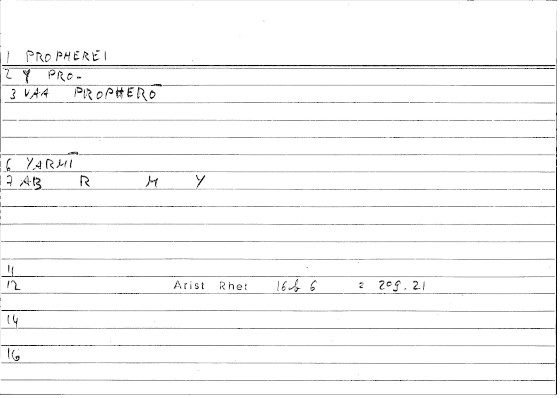 1 PROPHEREI
2 Y PRO-
3 VAA PROPHERŌ
6 YARMĪ
7 AB R M Y
11
12 Arist Rhet 16b6 = 209.21
14
16